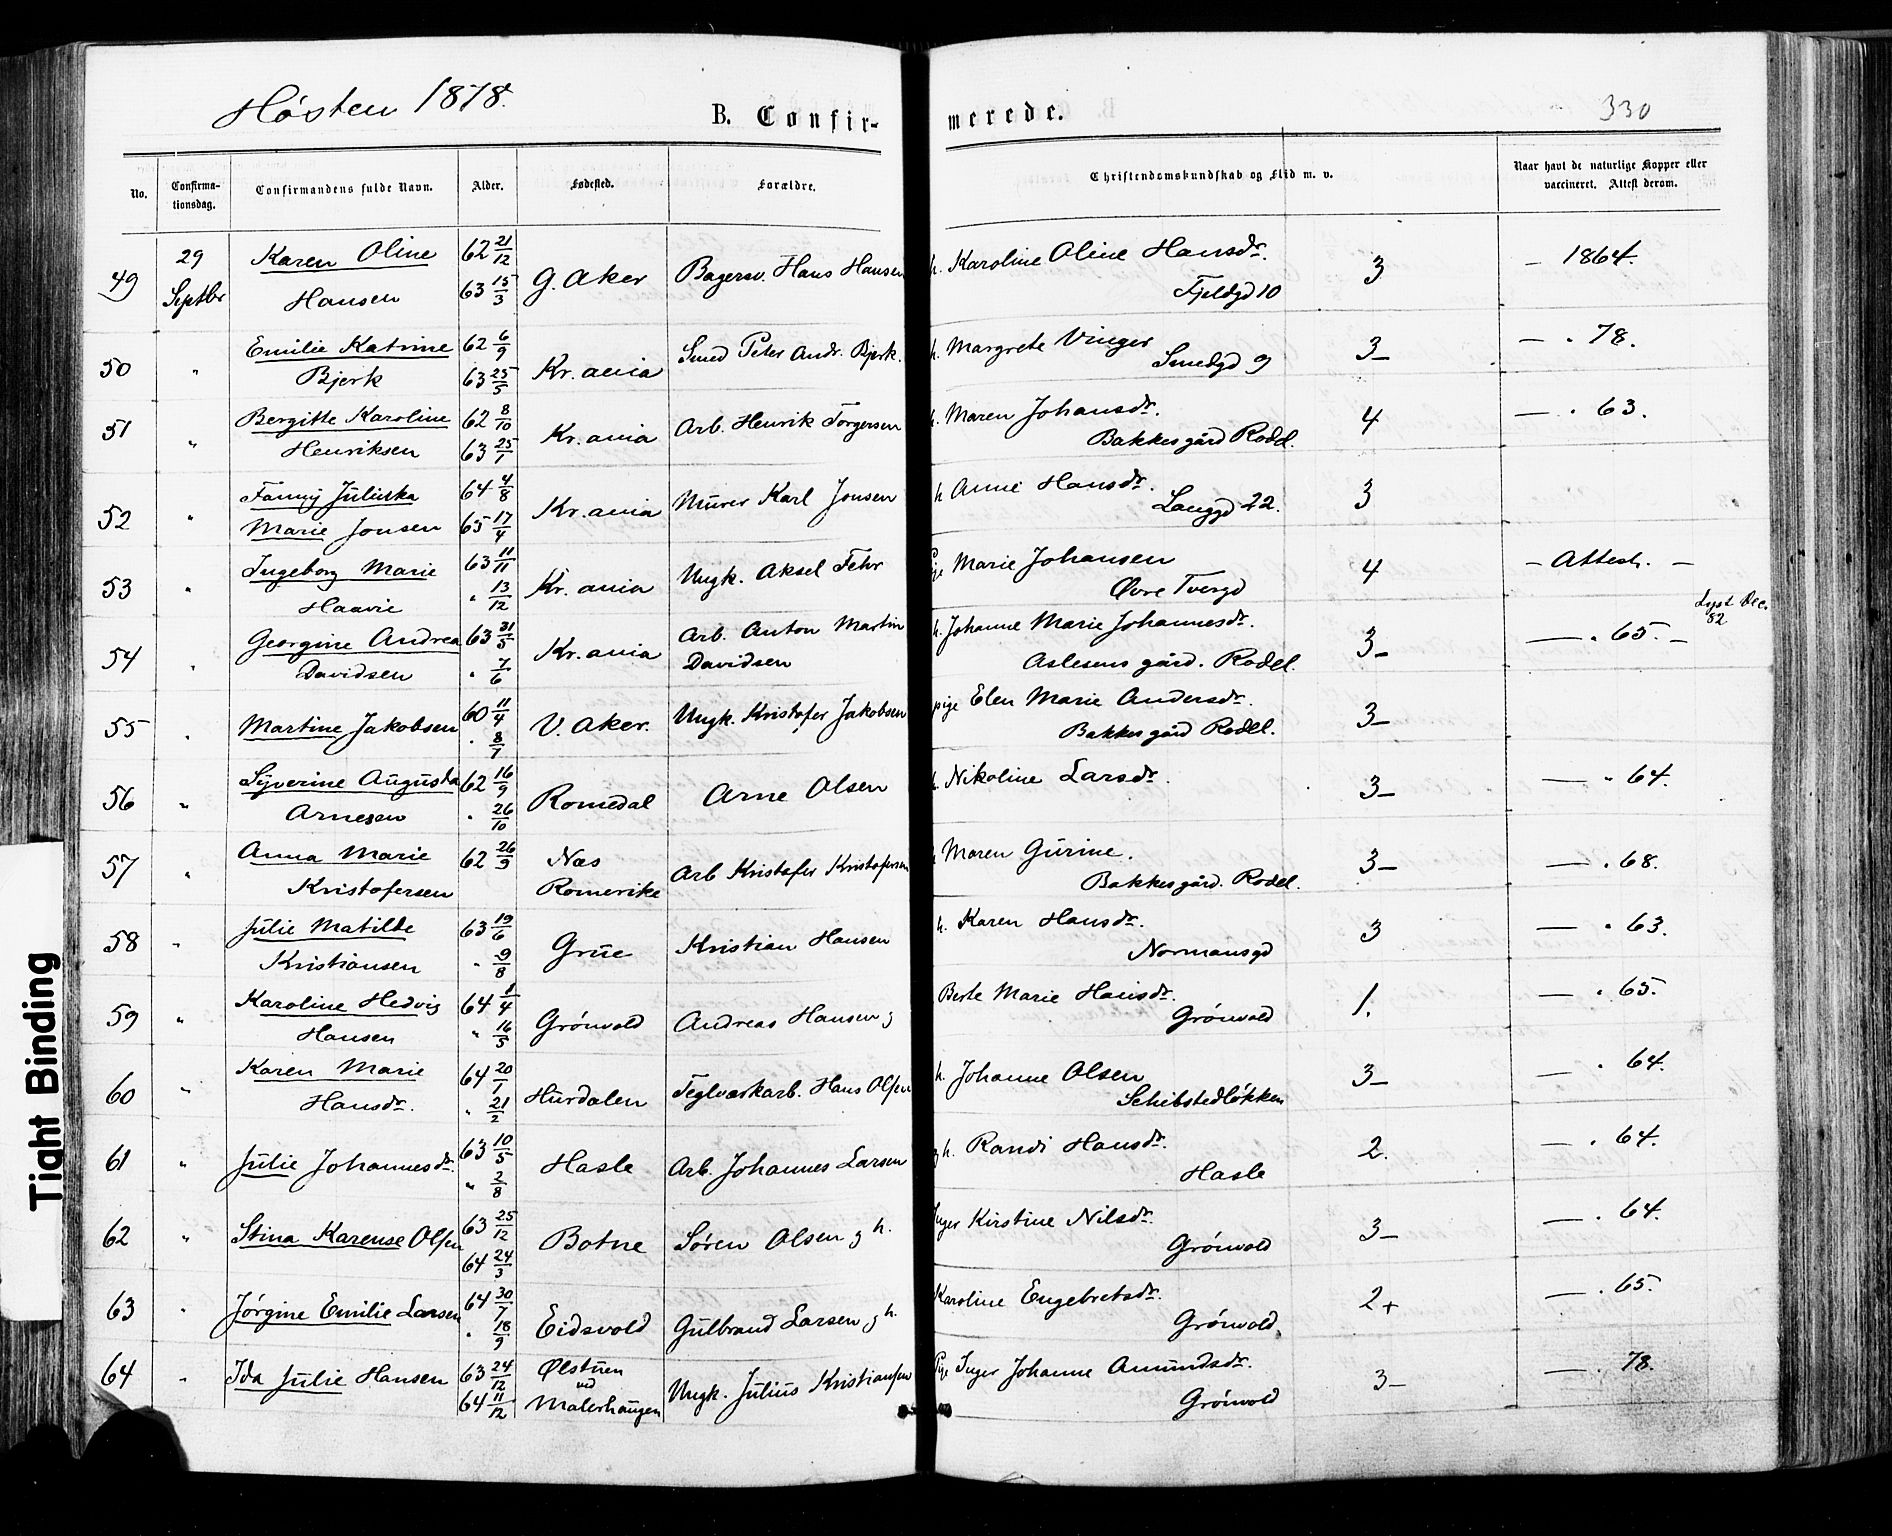 Høsten 1878.
B. Confirmerede.
330
No. Confirmationsdag. Confirmandens fulde Navn. Alder. Fødested. Forældre. Christendomskundskab og Flid m. v. Naar havt de naturlige Kopper eller vaccineret. Attest derom.
49 29 Septbr Karen Oline Hansen 62 21/12 63 15/3 G. Aker Bagersv. Hans Hansen h. Karoline Oline Hansdr. Fjeldgd 10 3 — 1864.
50 " Emilie Katrine Bjerk 62 6/9 63 25/5 Kr.ania Smed Peter Andr. Bjerk. h. Margrete Vinger Smedgd 9 3— — " 78.
51 " Bergitte Karoline Henriksen 62 8/10 63 25/1 Kr.ania Arb. Henrik Torgersen h. Maren Johansdr. Bakkesgård Rodel. 4 — " 63.
52 " Fanny Juliuska Marie Jonsen 64 4/8 65 17/4 Kr.ania Murer Karl Jonsen h Anne Hansdr. Langgd 22. 3
53 " Ingeborg Marie Haavie 63 11/11 " 13/12 Kr.ania Ungk. Aksel Fehr Pige Marie Johansen Øvre Tvergd 4 — Attest. —
54 " Georgine Andrea Davidsen 63 31/5 " 7/6 Kr.ania Arb. Anton Martin Davidsen h. Johanne Marie Johannesdr. Aslesens gård. Rodel. 3— — " 65. — Lyst Dec. 82
55 " Martine Jakobsen 60 11/4 " 8/7 V. Aker. Ungk. Kristofer Jakobsen pige Elen Marie Andersdr. Bakkes gård Rodel. 3—
56 " Syverine Augusta Arnesen 62 16/9 " 26/10 Romedal Arne Olsen h. Nikoline Larsdr. 3— — " 64.
57 " Anna Marie Kristofersen 62 26/9 Næs Romerike Arb Kristofer Kristofersen h Maren Gurine. Bakkesgård. Rodel. 3— — " 68.
58 " Julie Matilde Kristiansen 63 19/6 " 9/8 Grue Kristian Hansen h. Karen Hansdr. Normansgd 3 — " 63.
59 " Karoline Hedvig Hansen 64 1/4 " 16/5 Grönvold Andreas Hansen g Berte Marie Hansdr. Grönvold 1. — " 65.
60 " Karen Marie Hansdr. 64 20/1 " 21/2 Hurdalen Teglværkarb. Hans Olsen h. Johanne Olsen Schibstedløkken 3— — " 64.
61 " Julie Johannesdr. 63 10/5 " 2/8 Hasle Arb. Johannes Larsen g h. Randi Hansdr. Hasle 2. — " 64.
62 " Stina Karense Olsen 63 25/12 64 24/3 Botne Søren Olsen g h. Inger Kirstine Nilsdr. Grönvold 3— — " 64.
63 " Jørgine Emilie Larsen 64 30/7 " 18/9 Eidsvold Gulbrand Larsen g h. Karoline Engebretsdr. Grönvold. 2+ — " 65.
64 " Ida Julie Hansen 63 24/12 64 11/12 Ølstuen ved Malerhaugen Ungk. Julius Kristiansen Pige Inger Johanne Amundsdr. Grönvold 3— — " 78.
Tight Binding